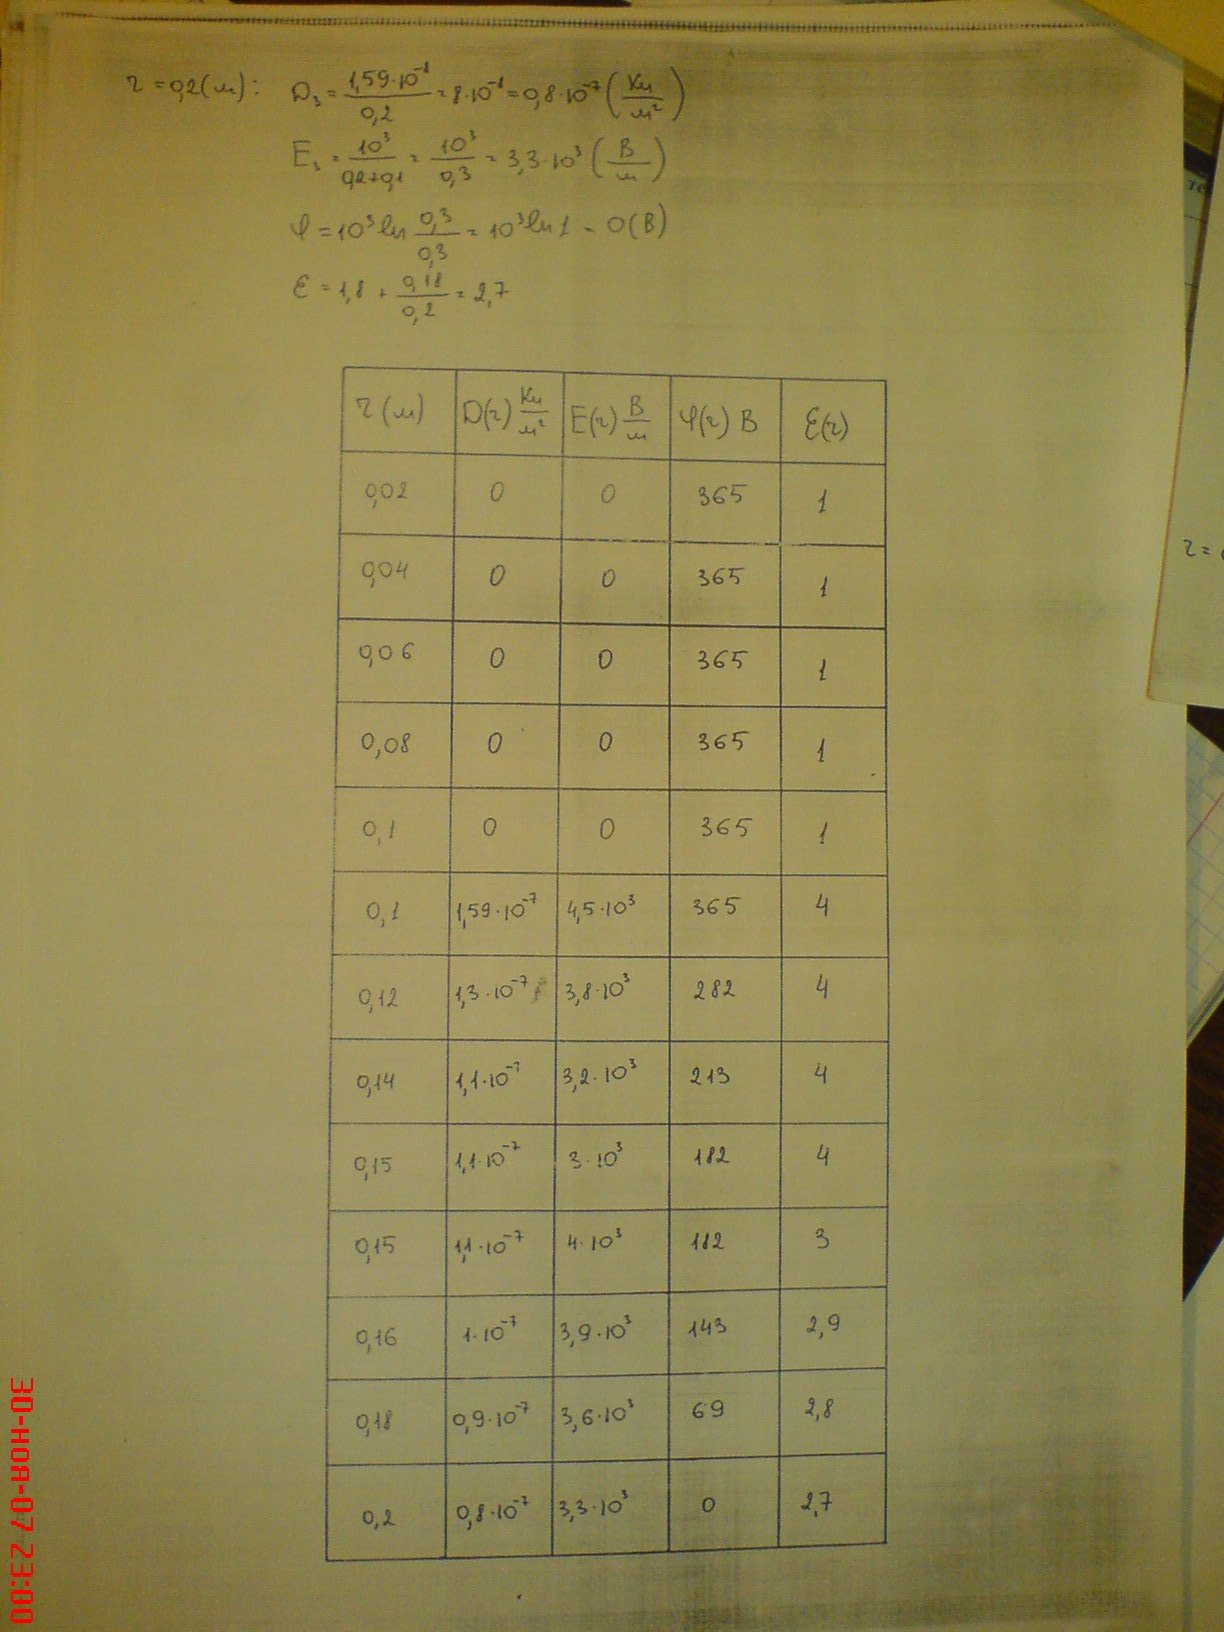 r = 0,2(м): D₃ = 1,59·10⁻⁸/0,2 = 8·10⁻⁸ = 0,8·10⁻⁷ (Кл/м²)
E₃ = 10³/(0,2+0,1) = 10³/0,3 = 3,3·10³ (В/м)
φ = 10³ ln 0,3/0,3 = 10³ ln 1 = 0(В)
ε = 1,8 + 0,18/0,2 = 2,7
r (м) D(r) Кл/м² E(r) В/м φ(r) В ε(r)
0,02 0 0 365 1
0,04 0 0 365 1
0,06 0 0 365 1
0,08 0 0 365 1
0,1 0 0 365 1
0,1 1,59·10⁻⁷ 4,5·10³ 365 4
0,12 1,3·10⁻⁷ 3,8·10³ 282 4
0,14 1,1·10⁻⁷ 3,2·10³ 213 4
0,15 1,1·10⁻⁷ 3·10³ 182 4
0,15 1,1·10⁻⁷ 4·10³ 182 3
0,16 1·10⁻⁷ 3,9·10³ 143 2,9
0,18 0,9·10⁻⁷ 3,6·10³ 69 2,8
0,2 0,8·10⁻⁷ 3,3·10³ 0 2,7
r =
30-ноя-07 23:00